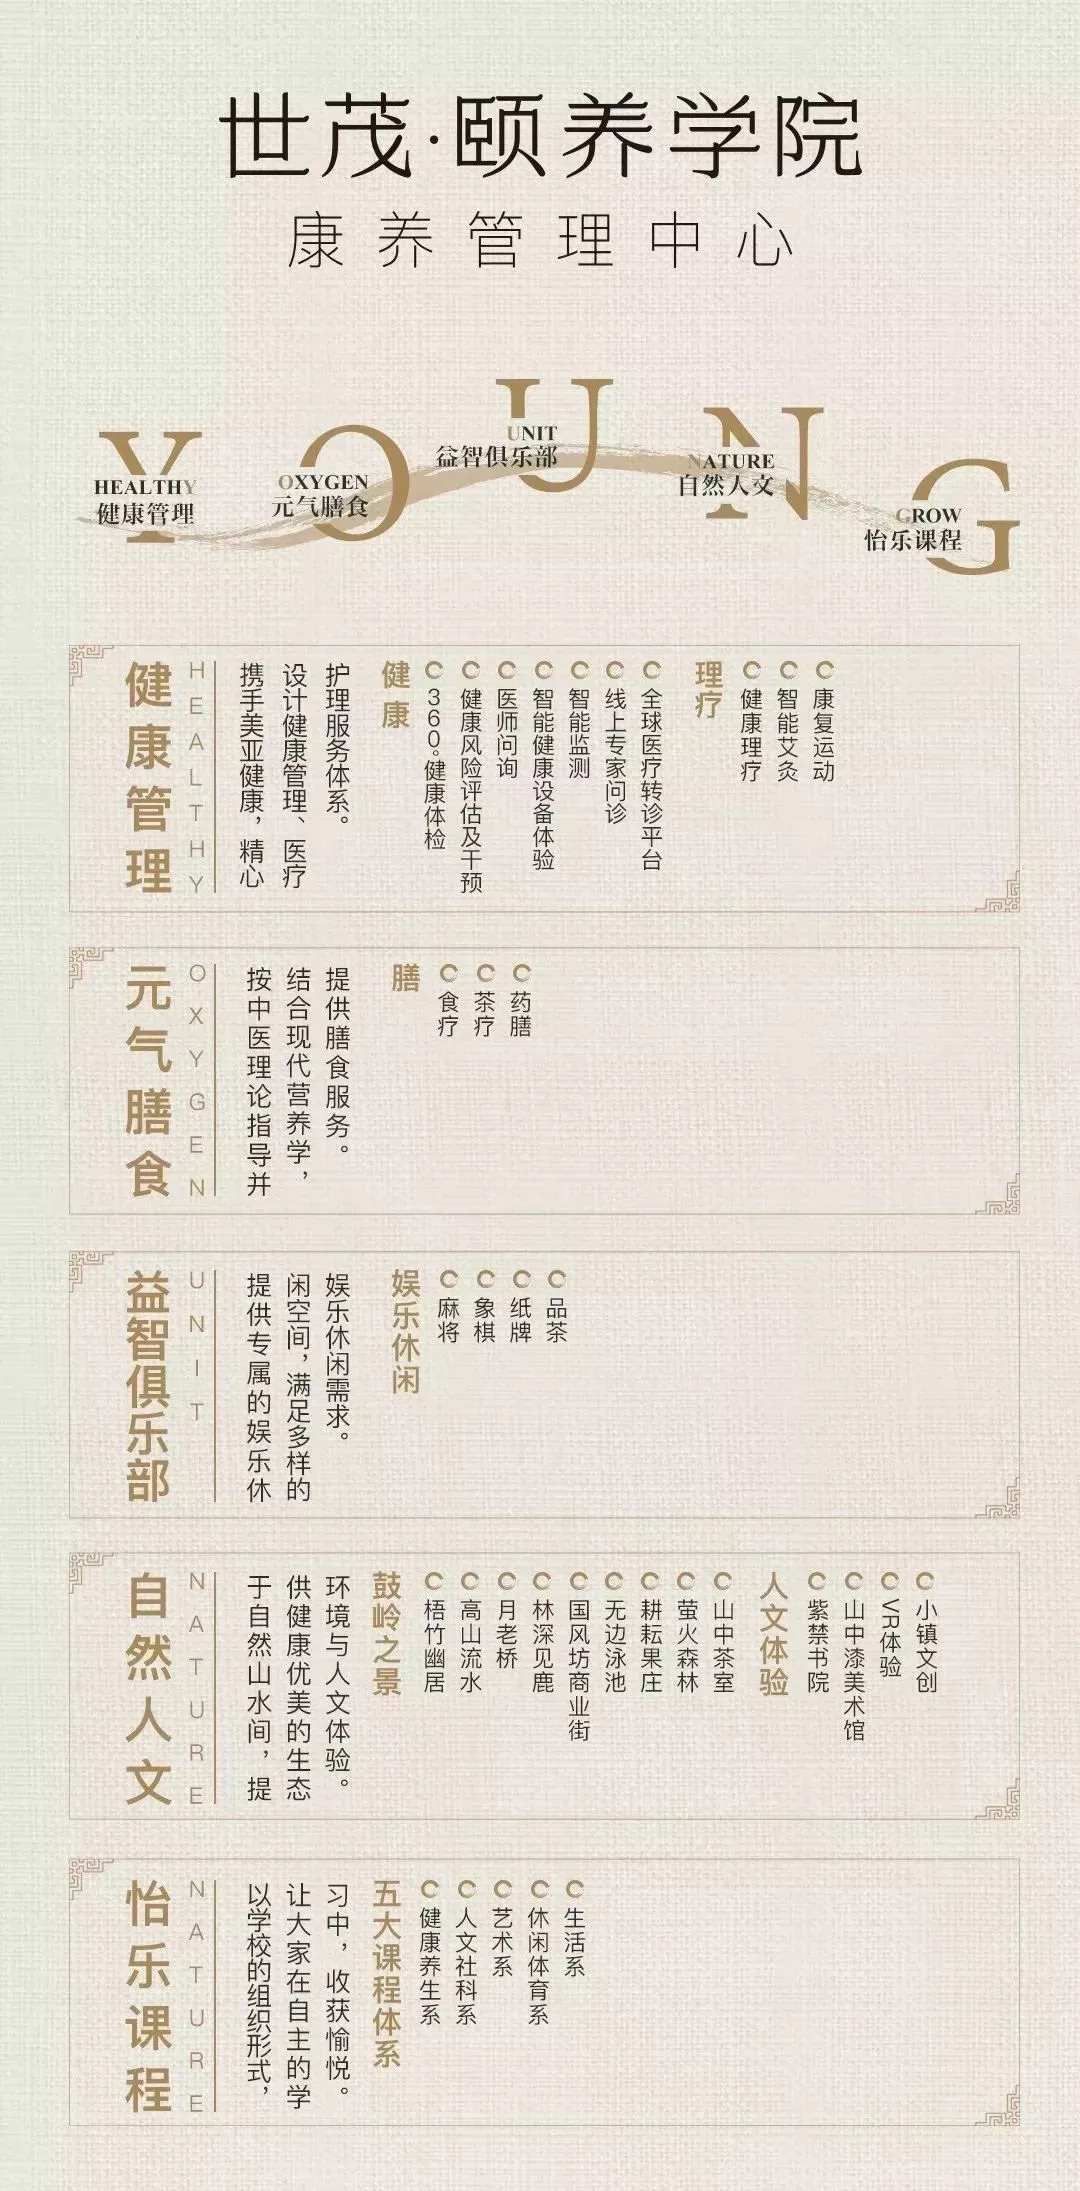 世茂·颐养学院
康养管理中心
HEALTHY
健康管理
OXYGEN
元气膳食
UNIT
益智俱乐部
NATURE
自然人文
GROW
怡乐课程
健康管理
HEALTHY
携手美亚健康，精心
设计健康管理、医疗
护理服务体系。
健康
360°健康体检
健康风险评估及干预
医师问询
智能健康设备体验
智能监测
线上专家问诊
全球医疗转诊平台
理疗
健康理疗
智能艾灸
康复运动
元气膳食
OXYGEN
按中医理论指导并
结合现代营养学，
提供膳食服务。
膳
食疗
茶疗
药膳
益智俱乐部
UNIT
提供专属的娱乐休
闲空间，满足多样的
娱乐休闲需求。
娱乐休闲
麻将
象棋
纸牌
品茶
自然人文
NATURE
于自然山水间，提
供健康优美的生态
环境与人文体验。
鼓岭之景
梧竹幽居
高山流水
月老桥
林深见鹿
国风坊商业街
无边泳池
耕耘果庄
萤火森林
山中茶室
人文体验
紫禁书院
山中漆美术馆
VR体验
小镇文创
怡乐课程
NATURE
以学校的组织形式，
让大家在自主的学
习中，收获愉悦。
五大课程体系
健康养生系
人文社科系
艺术系
休闲体育系
生活系